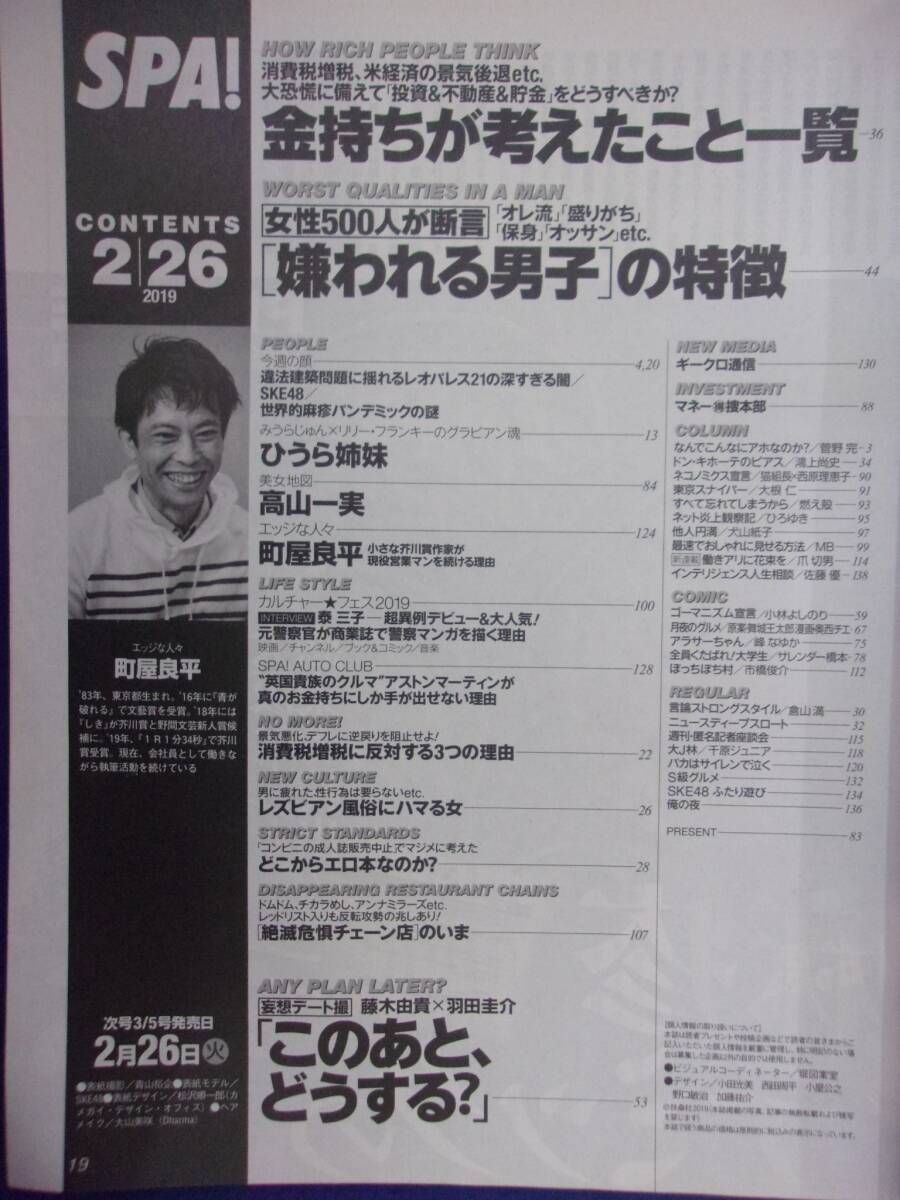 SPA!
CONTENTS
2|26
2019
エッジな人々
町屋良平
'83年、東京都生まれ。'16年に『青が
破れる』で文藝賞を受賞。'18年には
『しき』が芥川賞と野間文芸新人賞候
補に。'19年、『1R1分34秒』で芥川
賞受賞。現在、会社員として働きな
がら執筆活動を続けている
次号3/5号発売日
2月26日㊋
●表紙撮影／青山裕企●表紙モデル／
SKE48●表紙デザイン／松沢順一郎(カ
メガイ・デザイン・オフィス)●ヘア
メイク／大山美咲(Dharma)
19
HOW RICH PEOPLE THINK
消費税増税、米経済の景気後退etc.
大恐慌に備えて「投資&不動産&貯金」をどうすべきか?
金持ちが考えたこと一覧 36
WORST QUALITIES IN A MAN
女性500人が断言 「オレ流」「盛りがち」
「保身」「オッサン」etc.
[嫌われる男子]の特徴 44
PEOPLE
今週の顔 4,20
違法建築問題に揺れるレオパレス21の深すぎる闇／
SKE48／
世界的麻疹パンデミックの謎
みうらじゅん×リリー・フランキーのグラビアン魂 13
ひうら姉妹
美女地図 84
高山一実
エッジな人々 124
町屋良平 小さな芥川賞作家が
現役営業マンを続ける理由
LIFE STYLE
カルチャー★フェス2019 100
INTERVIEW 泰 三子―超異例デビュー&大人気!
元警察官が商業誌で警察マンガを描く理由
映画／チャンネル／ブック&コミック／音楽
SPA! AUTO CLUB 128
"英国貴族のクルマ"アストンマーティンが
真のお金持ちにしか手が出せない理由
NO MORE!
景気悪化、デフレに逆戻りを阻止せよ!
消費税増税に反対する3つの理由 22
NEW CULTURE
男に疲れた、性行為は要らないetc.
レズビアン風俗にハマる女 26
STRICT STANDARDS
「コンビニの成人誌販売中止」でマジメに考えた
どこからエロ本なのか? 28
DISAPPEARING RESTAURANT CHAINS
ドムドム、チカラめし、アンナミラーズetc.
レッドリスト入りも反転攻勢の兆しあり!
[絶滅危惧チェーン店]のいま 107
ANY PLAN LATER?
妄想デート撮 藤木由貴×羽田圭介
「このあと、
どうする?」 53
NEW MEDIA
ギークロ通信 130
INVESTMENT
マネー㊙捜本部 88
COLUMN
なんでこんなにアホなのか?／菅野 完 3
ドン・キホーテのピアス／鴻上尚史 34
ネコノミクス宣言／猫組長×西原理恵子 90
東京スナイパー／大根 仁 91
すべて忘れてしまうから／燃え殻 93
ネット炎上観察記／ひろゆき 95
他人円満／犬山紙子 97
最速でおしゃれに見せる方法／MB 99
新連載 働きアリに花束を／爪 切男 114
インテリジェンス人生相談／佐藤 優 138
COMIC
ゴーマニズム宣言／小林よしのり 59
月夜のグルメ／原案舞城王太郎漫画奥西チエ 67
アラサーちゃん／峰 なゆか 75
全員くたばれ!大学生／サレンダー橋本 78
ぼっちぼち村／市橋俊介 112
REGULAR
言論ストロングスタイル／倉山 満 30
ニュースディープスロート 32
週刊・匿名記者座談会 115
大J林／千原ジュニア 118
バカはサイレンで泣く 120
S級グルメ 132
SKE48 ふたり遊び 134
俺の夜 136
PRESENT 83
[個人情報の取り扱いについて]
本誌は読者プレゼントや投稿企画などで読者の皆さまからご
記入いただいた個人情報を厳重に管理し、特に明記のない場
合は募集した企画以外の目的では使用しません。
●ビジュアルコーディネーター／堀図案室
●デザイン／小田光美 西田周平 小屋公之
野口敏治 加藤祐介
©扶桑社2019(本誌掲載の写真、記事の無断転載および複写
を禁じます)
本誌で扱う商品の価格は原則的に税込みの表示になっています。